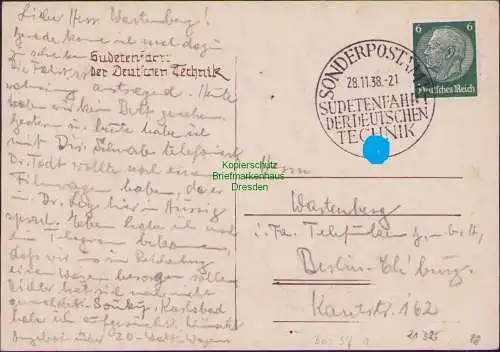 Lieber Herr Wartenberg!
Gerade komme ich mal dazu
zu schreiben
Die Fahrt ist
anstrengend. Heute
haben wir kein Bett gesehen.
Gestern u. heute habe ich
mit Dir. Schwabe telefoniert
Dr. Todt wollte noch einen
Filmwagen haben, da er
u. Dr. Ley hier in Aussig
spricht. Eben habe ich noch
ein Telegramm bekommen,
daß wir
einen Wagen besorgen sollen
Richter hat sich noch nicht
gemeldet. Soukup, Karlsbad
habe ich aufgesucht, wünscht
Angebot über 20-Watt-Wagen
Sudetenfahrt
der Deutschen Technik
SONDERPOSTAMT
28.11.38.-21
SUDETENFAHRT
DER DEUTSCHEN
TECHNIK
6 6
Deutsches Reich
Kopierschutz
Briefmarkenhaus
Dresden
Herrn
Wartenberg
i. Fa. Telefunken G.m.b.H.
Berlin-Ch'burg
Kantstr. 162
21325